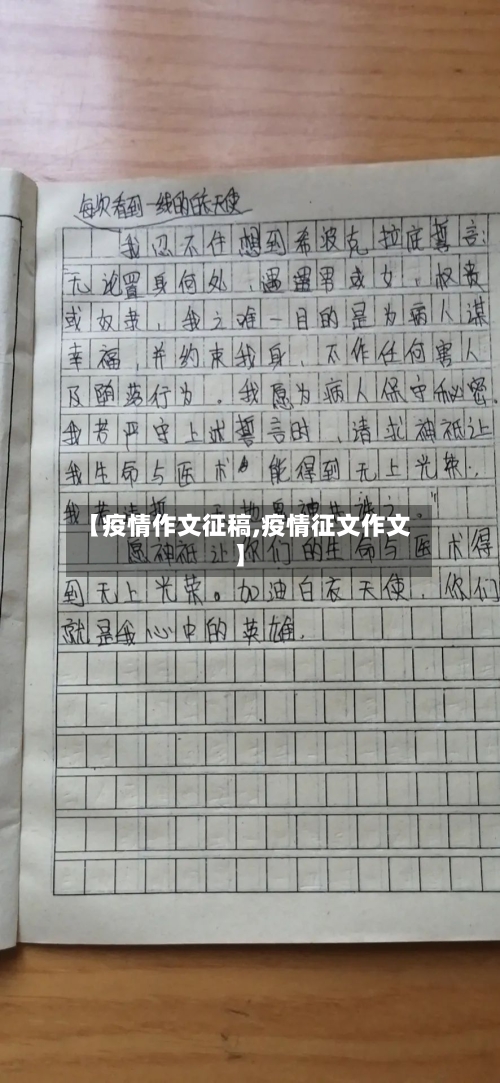 每次看到一线的白衣天使
我忍不住想到希波克拉底誓言:
无论置身何处,遇男或女,权贵
或奴隶,我之唯一目的是为病人谋
幸福,并约束我身,不作任何害人
及堕落行为。我愿为病人保守秘密。
我若严守上述誓言时,请求神祇让
我生命与医术能得到无上光荣,
我
【疫情作文征稿,疫情征文作文
】
愿神祇让你们的生命与医术得
到无上光荣。加油白衣天使,你们
就是我心中的英雄.